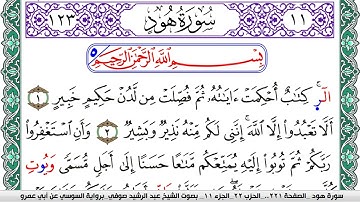 ١١ سُورَةُ هُودٍ ١٢٣
بِسْمِ اللَّهِ الرَّحْمَٰنِ الرَّحِيمِ
الٓر كِتَابٌ أُحْكِمَتْ ءَايَاتُهُ ثُمَّ فُصِّلَتْ مِن لَّدُنْ حَكِيمٍ خَبِيرٍ ١
أَلَّا تَعْبُدُوا إِلَّا اللَّهَ إِنَّنِي لَكُم مِّنْهُ نَذِيرٌ وَبَشِيرٌ ٢ وَأَنِ اسْتَغْفِرُوا
رَبَّكُمْ ثُمَّ تُوبُوا إِلَيْهِ يُمَتِّعْكُم مَّتَاعًا حَسَنًا إِلَىٰ أَجَلٍ مُّسَمًّى وَيُوتِ
سورة هود .. الصفحة ٢٢١.. الحزب ٢٢.. الجزء ١١.. بصوت الشيخ عبد الرشيد صوفي.. برواية السوسي عن أبي عمرو